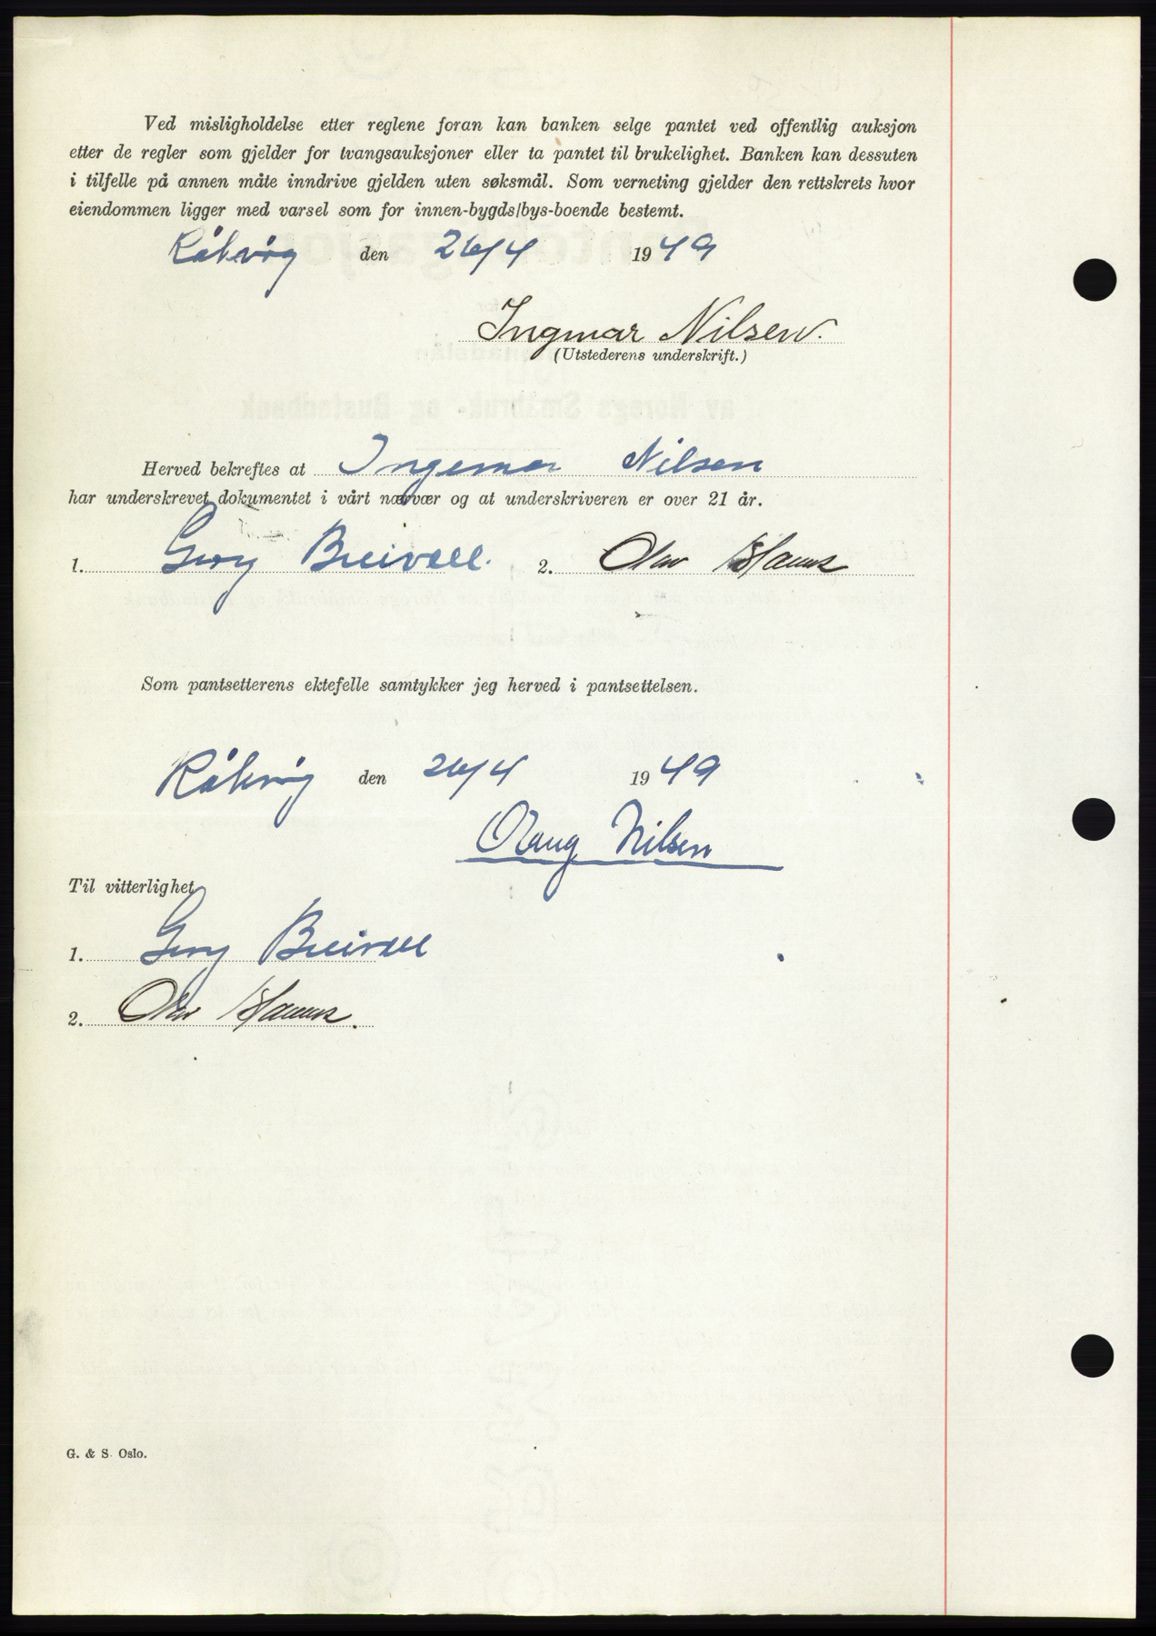 Ved misligholdelse etter reglene foran kan banken selge pantet ved offentlig auksjon
etter de regler som gjelder for tvangsauksjoner eller ta pantet til brukelighet. Banken kan dessuten
i tilfelle på annen måte inndrive gjelden uten søksmål. Som verneting gjelder den rettskrets hvor
eiendommen ligger med varsel som for innen-bygds/bys-boende bestemt.
Råkvåg den 26/4 1949
Ingmar Nilsen.
(Utstederens underskrift.)
Herved bekreftes at Ingemar Nilsen
har underskrevet dokumentet i vårt nærvær og at underskriveren er over 21 år.
1. Georg Breivoll. 2. Olav
Som pantsetterens ektefelle samtykker jeg herved i pantsettelsen.
Råkvåg den 26/4 1949
Olaug Nilsen
Til vitterlighet
1. Georg Breivoll
2. Olav
G. & S. Oslo.